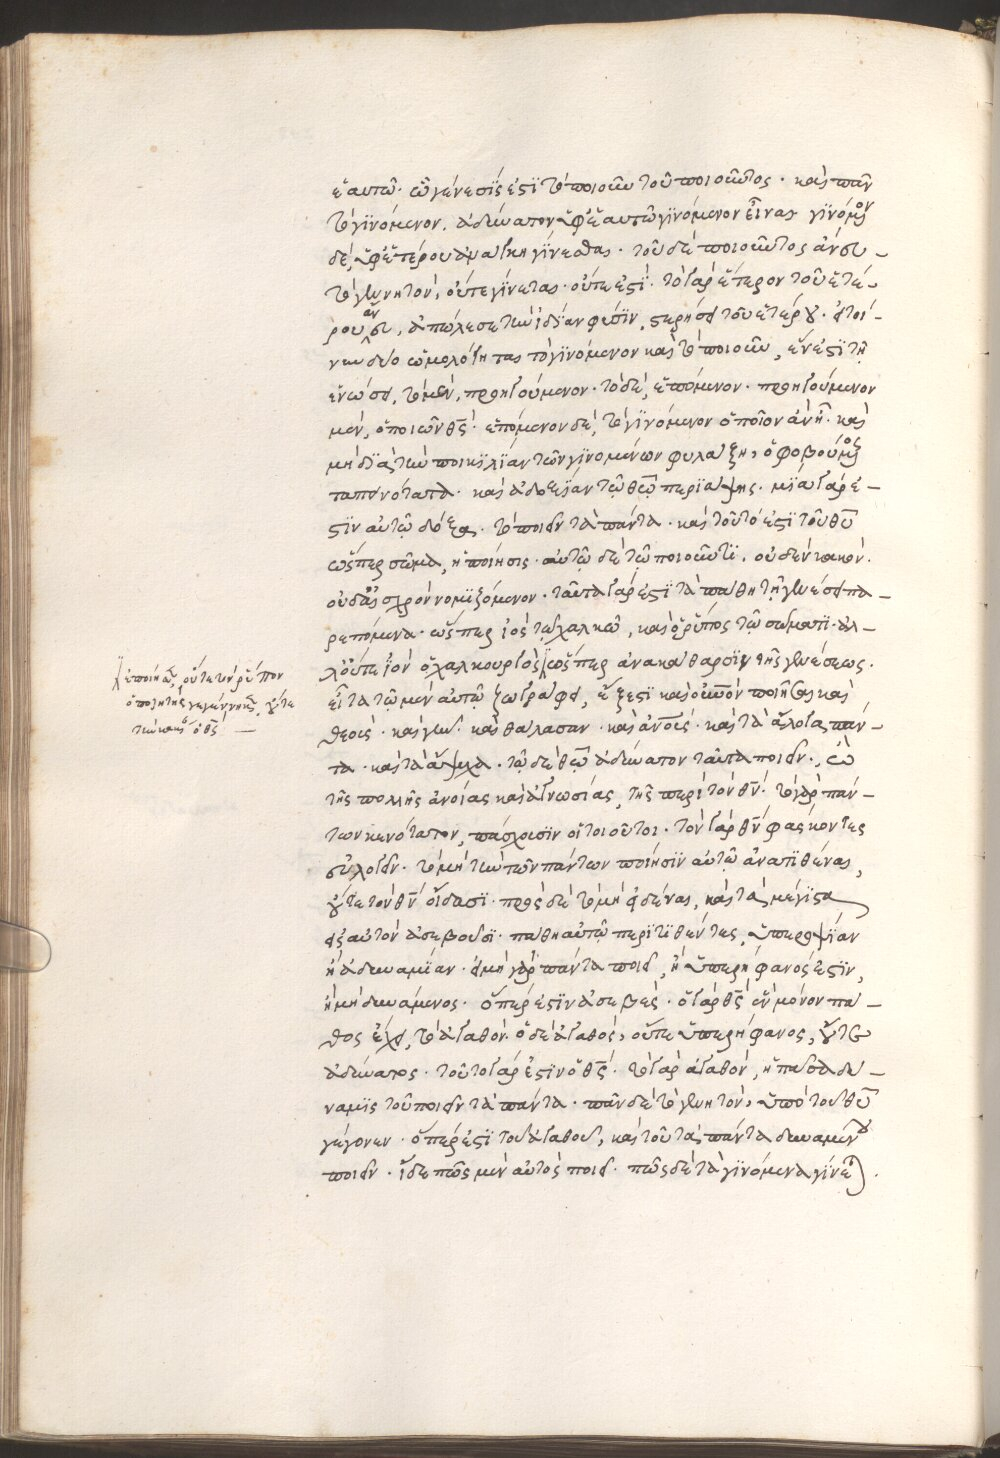 ἑαυτῶ· ὧ γένεσίς ἐστὶ τὸ ποιοῦν τοῦ ποιοῦντος· καὶ πᾶν
τὸ γινόμενον, ἀδύνατον ὑφ' ἑαυτῶ γινόμενον εἶναι· γινόμενον
δὲ, ὑφ' ἑτέρου ἀναγκη γίνεσθαι· τοῦ δὲ ποιοῦντος ἄνευ –
τὸ γεννητὸν, οὔτε γίνεται· οὔτε ἐστὶ· τὸ γὰρ ἕτερον τοῦ ἑτέ–
ρου ἄνευ, ἀπώλεσε τὴν ἰδίαν φύσιν, στερήσει τοῦ ἑτέρου. εἰ τοί–
νυν δύο ὡμολόγηται τὸ γινόμενον καὶ τὸ ποιοῦν, ἕν ἐστὶ τῆ
ἑνώσει, τὸ μὲν, προηγούμενον· τὸ δὲ, ἑπόμενον· προηγούμενον
μὲν, ὁ ποιῶν θς̄· ἑπόμενον δὲ, τὸ γινόμενον ὁποῖον ἀν ἦ· καὶ
μὴ διὰ τὴν ποικιλίαν τῶν γινομένων φυλάξη, ὁ φοβούμενος
ταπεινότατα· καὶ ἀδοξίαν τῶ θεῶ περιάψης· μία γάρ ἐ–
στιν αὐτῶ δόξα· τὸ ποιεῖν τὰ πάντα· καὶ τοῦτό ἐστὶ τοῦ θῡ
ὥσπερ σῶμα, ἡ ποίησις· αὐτῶ δὲ τῶ ποιοῦντι, οὐδὲν κακὸν.
οὐδ' αἰσχρὸν νομιζόμενον· ταῦτα γάρ ἐστὶ τὰ πάθη τῆ γενέσει πα–
ρεπόμενα· ὥσπερ ἰὸς τῶ χαλκῶ, καὶ ὁ ῥύπος τῶ σώματι· ἀλ–
λ' οὔτε ἰὸν ὁ χαλκουργὸς ὥσπερ ἀνακάθαρσιν τῆς γενέσεως.
εἶτα τῶ μὲν αὐτῶ ζωγράφω, ἔξεστι καὶ οὐνὸν ποιῆσαι καὶ
θεοὺς· καὶ γῆν· καὶ θάλασσαν· καὶ ἀνοῦς· καὶ τὰ ἄλογα πάν–
τα· καὶ τὰ ἄψυχα· τῶ δὲ θεῶ ἀδύνατον ταῦτα ποιεῖν·, ὢ
τῆς πολλῆς ἀνοίας καὶ ἀγνωσίας, τῆς περὶ τὸν θν̄· τὸ γὰρ πάν–
των κενότατον, πάσχουσιν οἱ τοιοῦτοι· τὸν γὰρ θν̄ φάσκοντες
εὐλογεῖν· τὸ μὴ τὴν τῶν πάντων ποίησιν αὐτῶ ἀνατιθέναι,
οὔτε τὸν θν̄ οἴδασι· πρὸς δὲ τὸ μὴ εἰδέναι, καὶ τὰ μέγιστα
εἰς αὐτὸν ἀσεβοῦσι· παθη αὐτῶ περιτιθέντες, ὑπεροψίαν
ἢ ἀδυναμίαν· εἰ μὴ γὰρ πάντα ποιεῖ, ἢ ὑπερήφανός ἐστιν,
ἢ μὴ δυνάμενος· ὅπερ ἐστὶν ἀσεβὲς· ὁ γὰρ θς̄ ἓν μόνον πά–
θος ἔχει, τὸ ἀγαθόν. ὁ δὲ ἀγαθὸς, οὔτε ὑπερήφανος, οὔτε
ἀδύνατος· τοῦτο γάρ ἐστιν ὁ θς̄· τὸ γὰρ ἀγαθὸν, ἡ πᾶσα δύ–
ναμις τοῦ ποιεῖν τὰ πάντα· πᾶν δὲ τὸ γεννητὸν, ὑπὸ τοῦ θῡ
γέγονεν· ὅπερ ἐστὶ τοῦ ἀγαθοῦ, καὶ τοῦ τὰ πάντα δυναμένου
ποιεῖν· ἴδε πῶς μὲν αὐτὸς ποιεῖ· πῶς δὲ τὰ γινόμενα γίνεται.
ἐποίησεν, οὔτε τὸν ῥύπον
ὁ ποιητὴς γεγέννηκεν, οὔτε
τὴν κακίαν ὁ θς̄ –